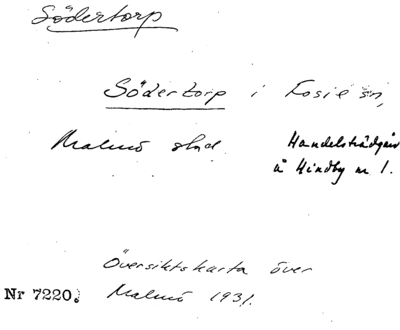 Södertorp
Södertorp i Fosie sn,
Malmö stad. Handelsträdgår
å Hindby nr 1.
Översiktskarta över
Nr 7220. Malmö 1931.